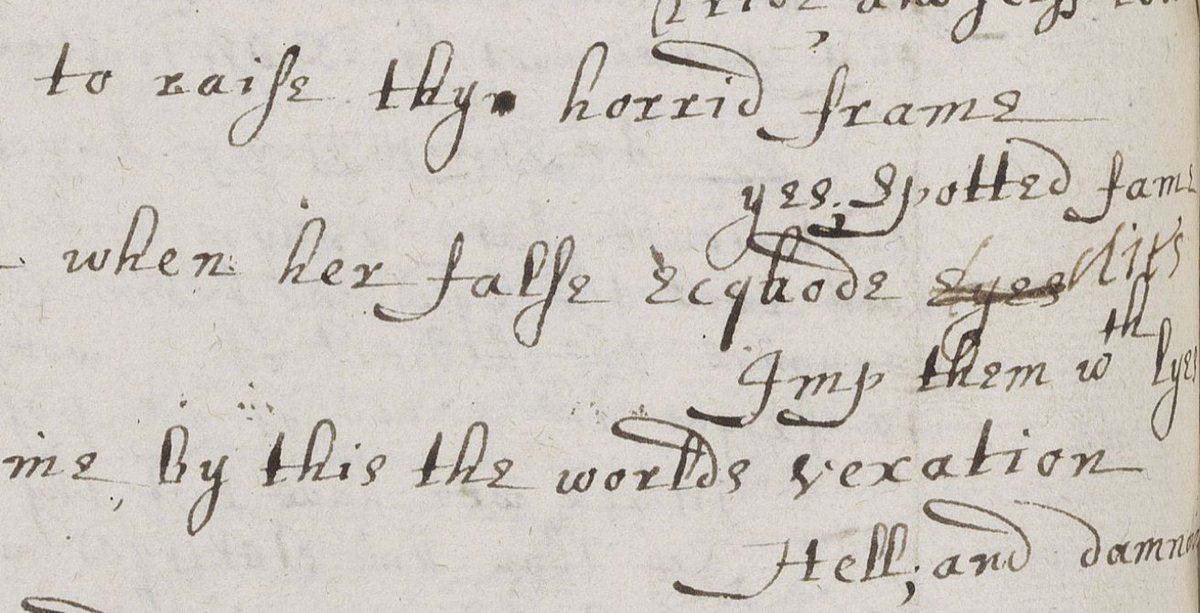 to raise thy horrid frame
yes, Spotted fame
when her false ecqhode eyes dies
Imp them wth lyes
me, By this the worlds vexation
Hell, and damn